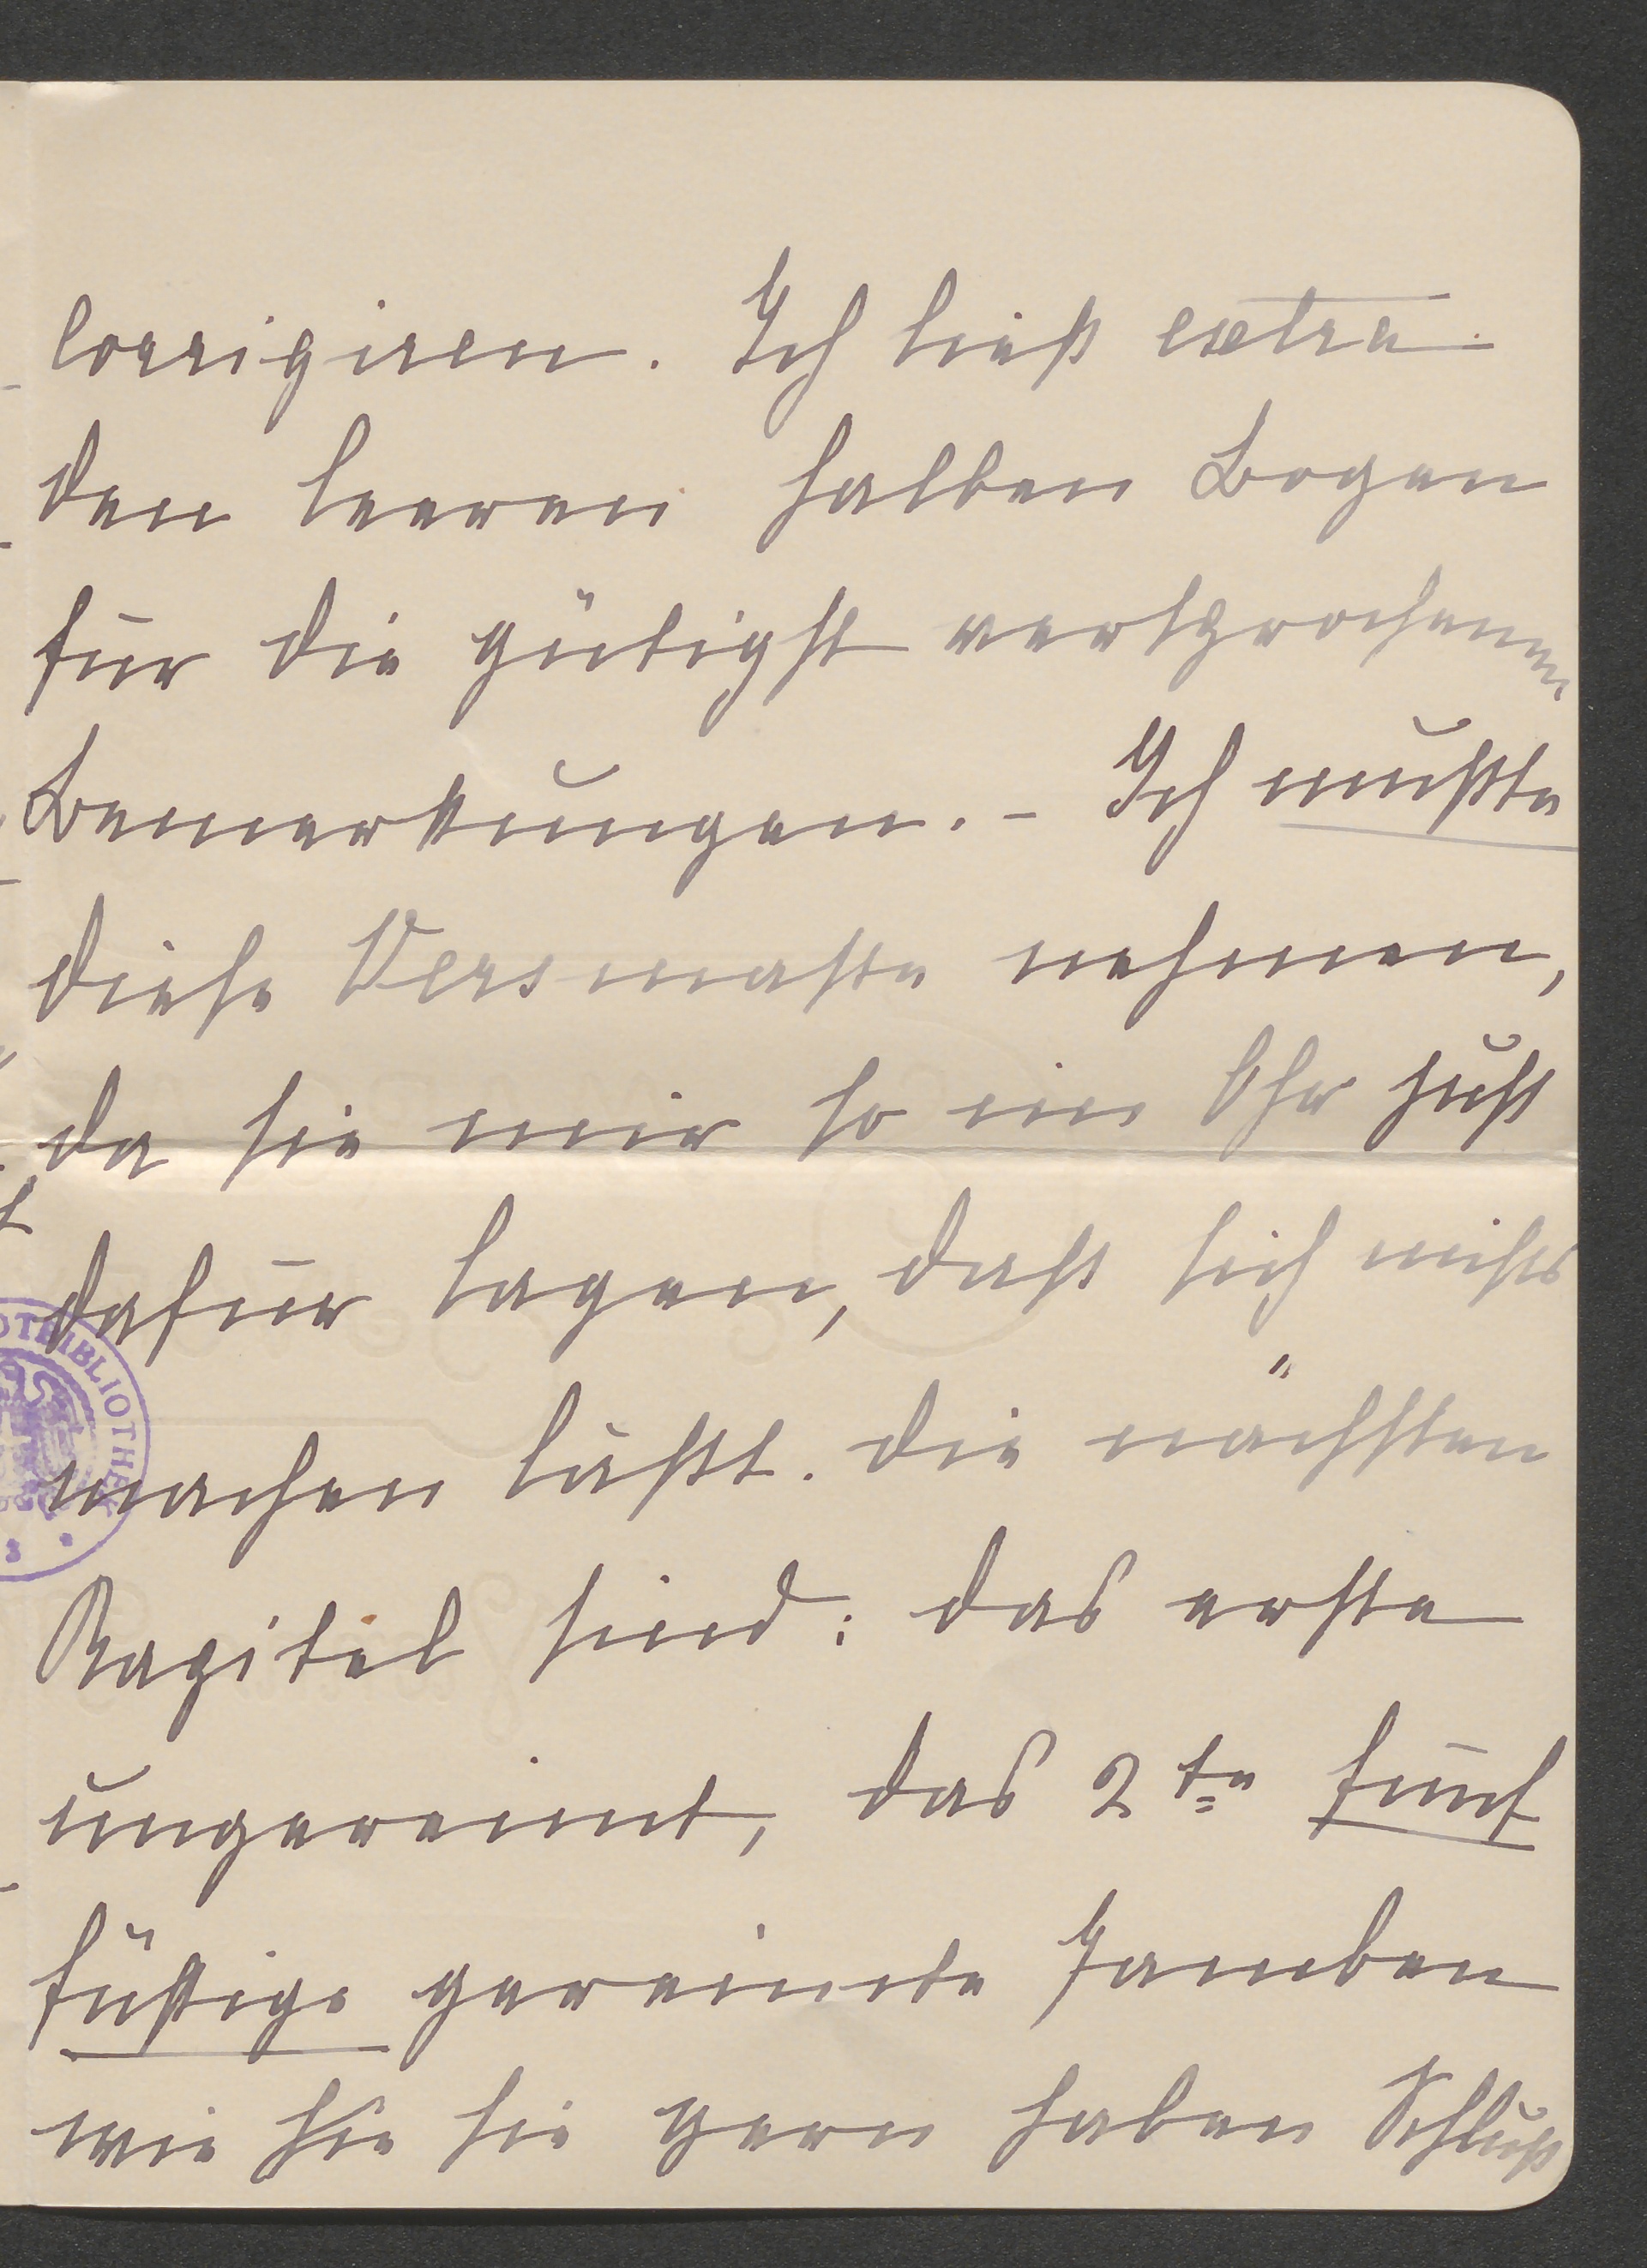 corrigiren. Ich ließ extra
den leeren halben Bogen
für die gütigst versprochenen
Bemerkungen. – Ich mußte
diese Versmaße nehmen,
da sie mir so im Ohr just
dafür lagen, daß sich nichts
machen läßt. Die nächsten
Kapitel sind: das erste
ungereimt, das 2te fünf
füßige gereimte Jamben
wie Sie sie gern haben Schluß
BIBLIOTHEK